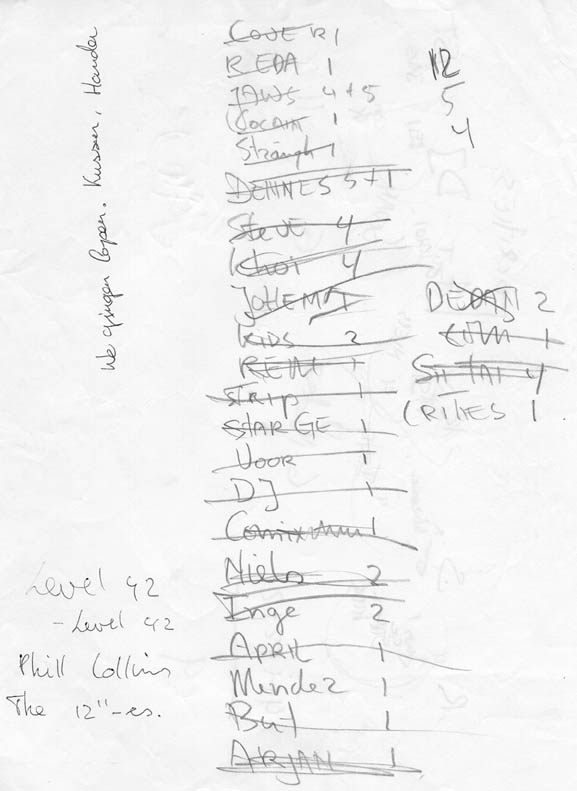 COVER 1
REDA 1
JAWS 4+5
COCAIN 1
Straight 1
DENNES 5+1
Steve 4
Khoi 4
JOHEM 1
KIDS 2
REM 1
STRIP 1
STAR GE 1
VOOR 1
DJ 1
Comix 1
Niels 2
Inge 2
APRIL 1
Mendez 1
But 1
ARJAN 1
12
5
4
DEDAN 2
COM 1
1
4
CRITIES 1
We gingen lopen. Kussen, Handen
Level 42
- Level 42
Phill Collins
The 12"-es.